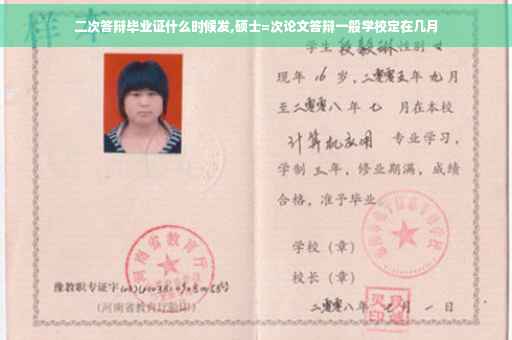 二次答辩毕业证什么时候发,硕士=次论文答辩一般学校定在几月
样本
学生 段毅琳 性别 女
现年 16 岁，二零零五年 九月
至二零零八年 七 月在本校
计算机应用 专业学习，
学制 三年，修业期满，成绩
合格，准予毕业
学校（章）
校长（章）
二零零八年 七月 一日
河南省教育厅
豫教职专证字
(河南省教育厅监印)